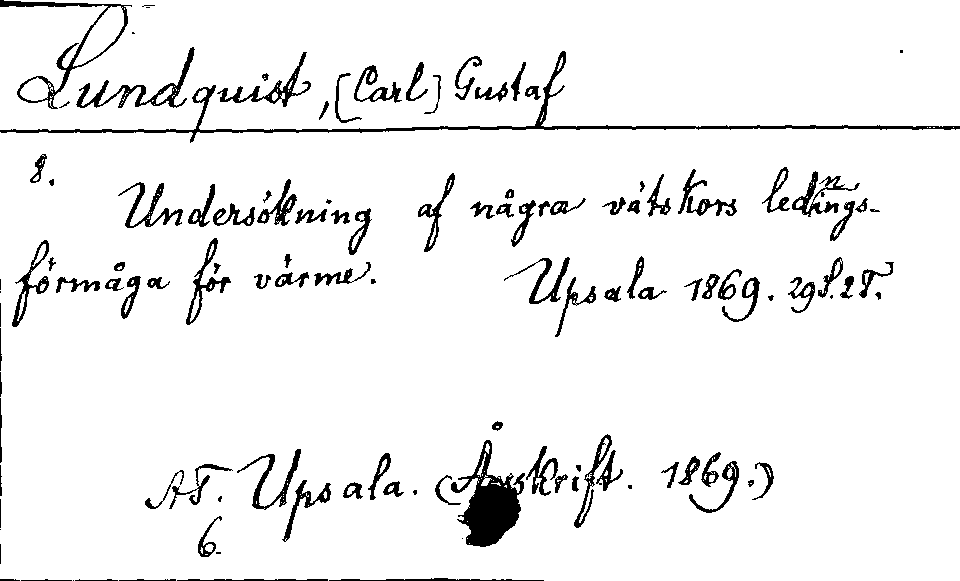 Lundquist, [Carl] Gustaf
8.
Undersökning af några vätskors lednings-
förmåga för värme. Upsala 1869. 29 S. 2 T.
AT. Upsala. (Årsskrift. 1869.)
6.